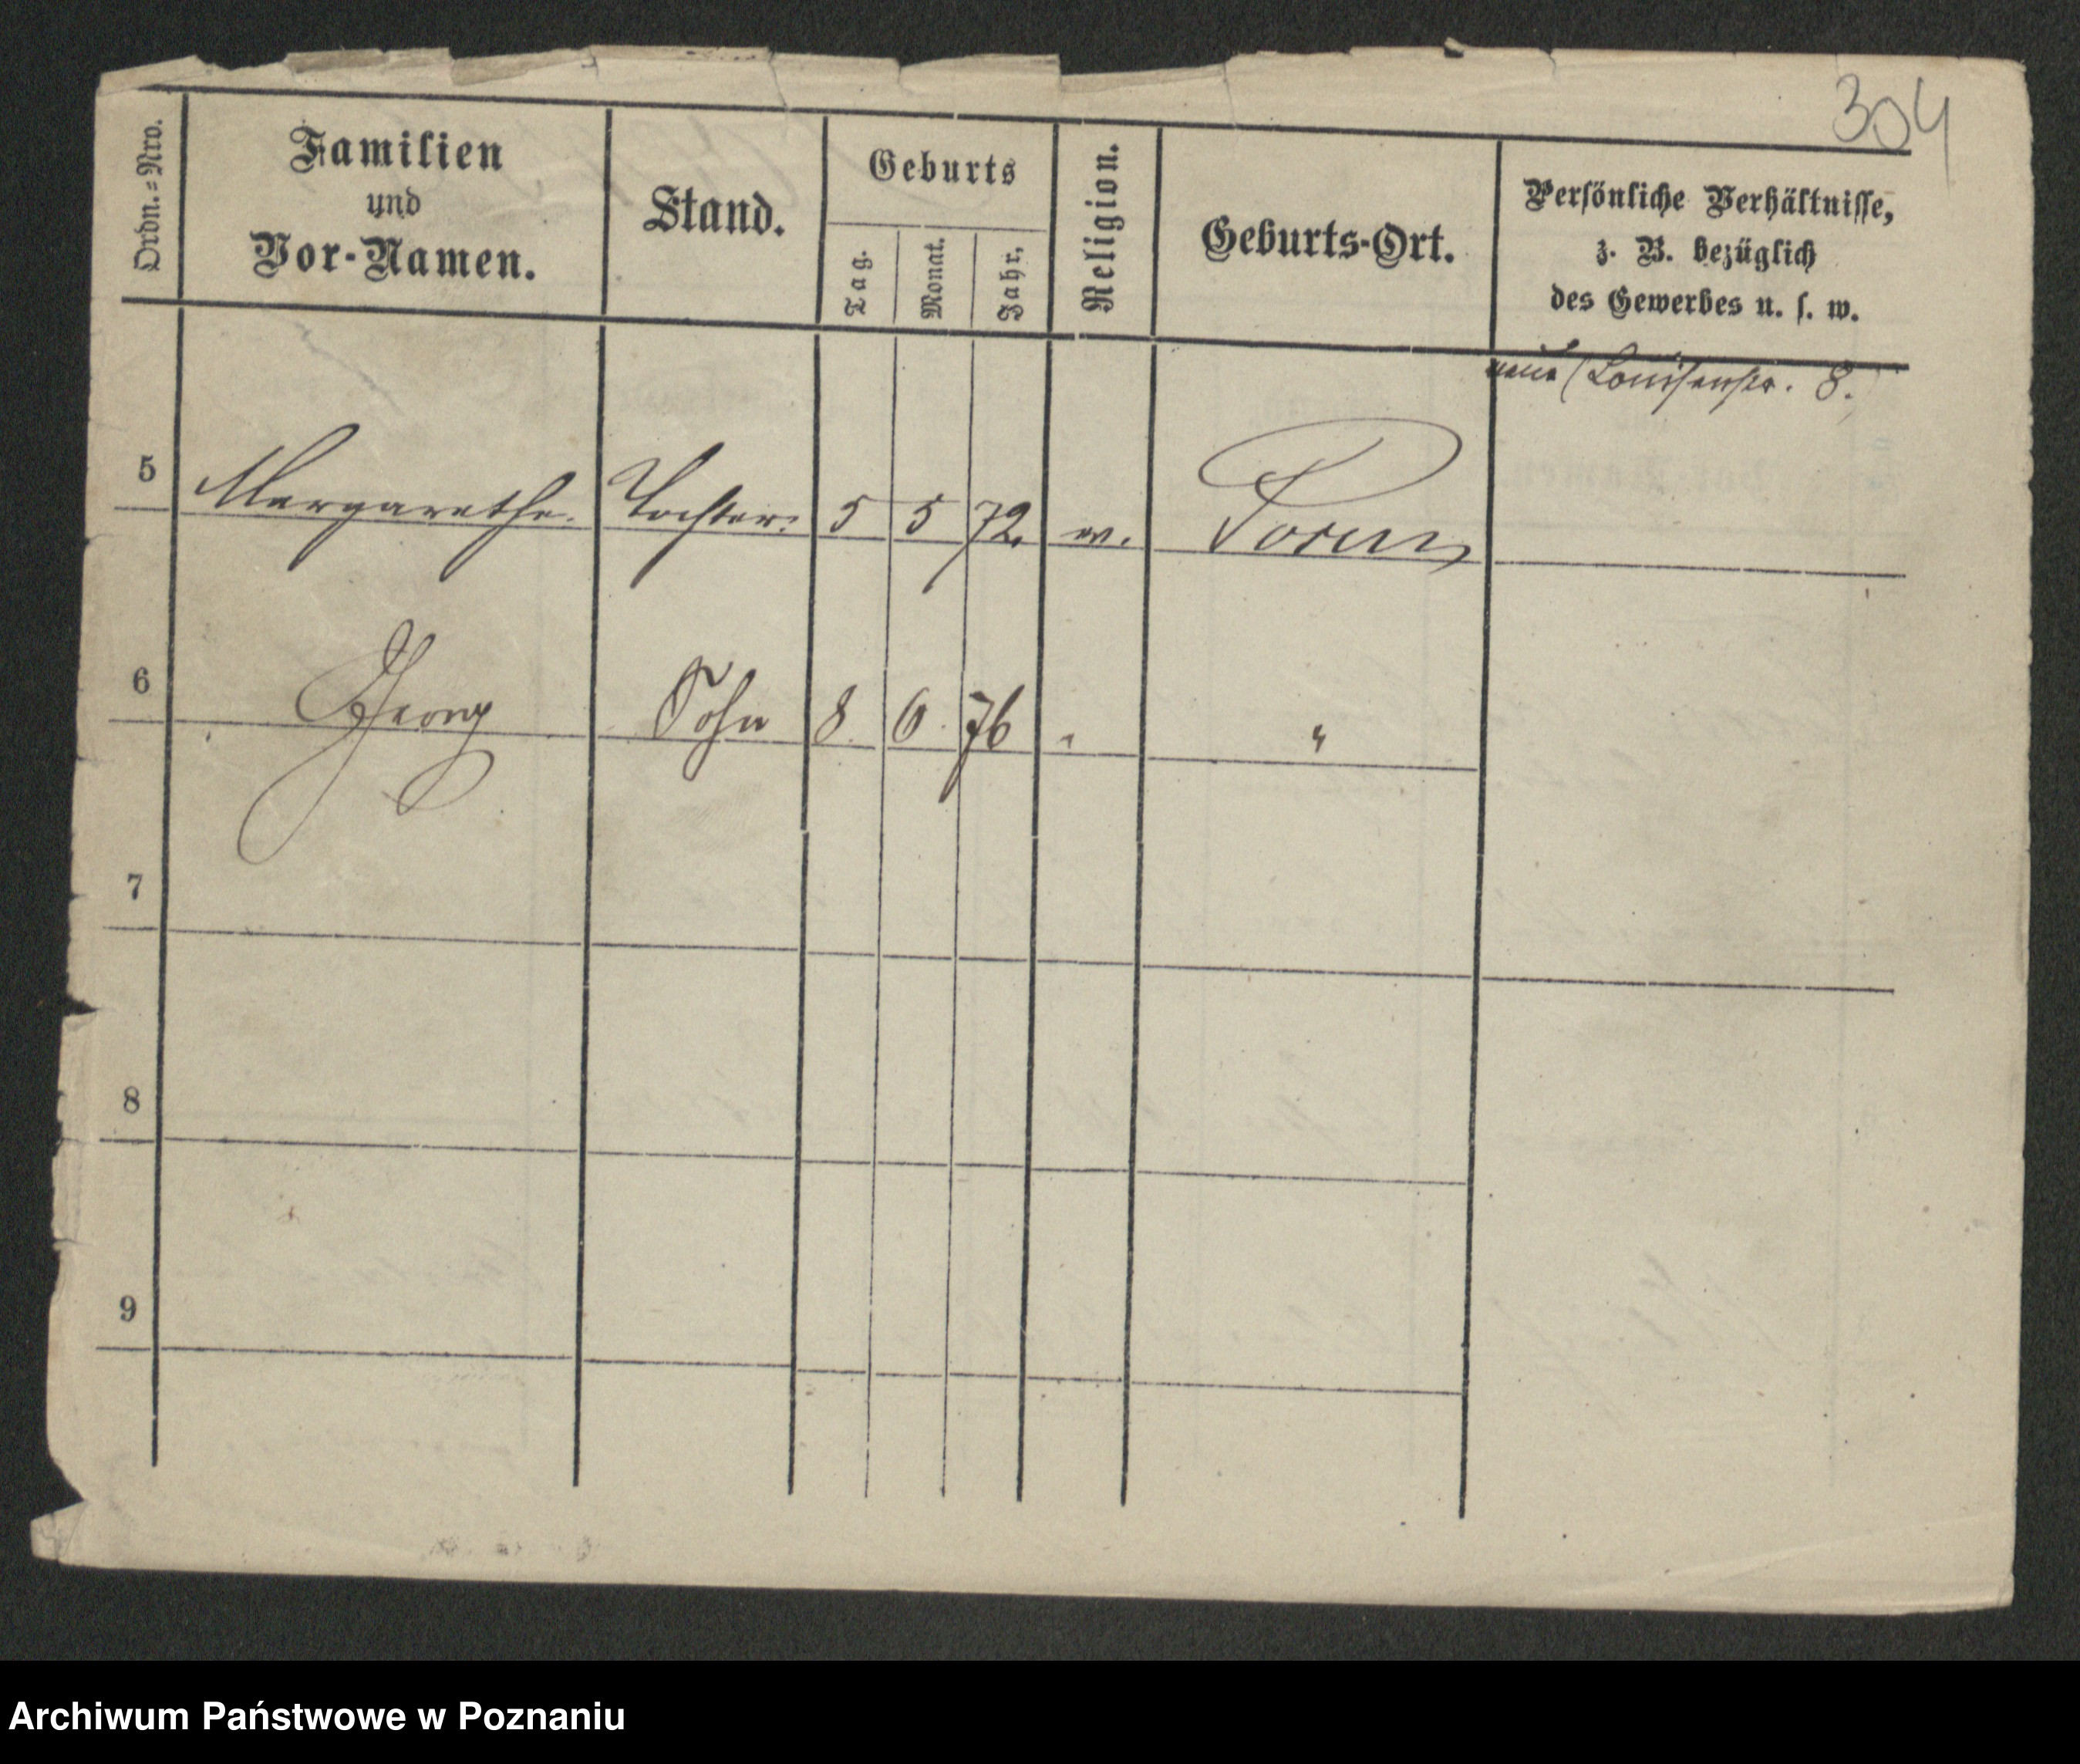 304
Ordn.=Nro.
Familien
und
Vor-Namen.
Stand.
Geburts
Tag.
Monat.
Jahr.
Religion.
Geburts-Ort.
Persönliche Verhältnisse,
z. B. bezüglich
des Gewerbes u. s. w.
Louisenstr. 8.
5 Margarethe. Tochter. 5 5 72. ev. Posen
6 Georg Sohn 8. 6. 76 " "
7
8
9
Archiwum Państwowe w Poznaniu